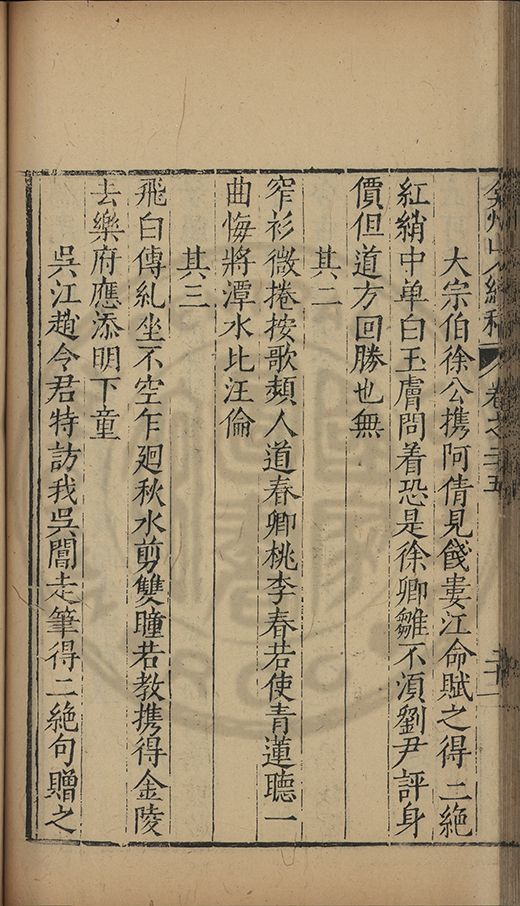 弇州山人續稿 卷之二五
大宗伯徐公携阿倩見餞婁江命賦之得二絶
紅綃中单白玉膚問着恐是徐卿雛不湏劉尹評身
價但道方回勝也無
其二
窄衫微捲按歌頻人道春卿桃李春若使青蓮聽一
曲悔將潭水比汪倫
其三
飛白傳糺坐不空乍廻秋水剪雙瞳若教携得金陵
去樂府應添明下童
吳江趙令君特訪我吳閶走筆得二絶句贈之